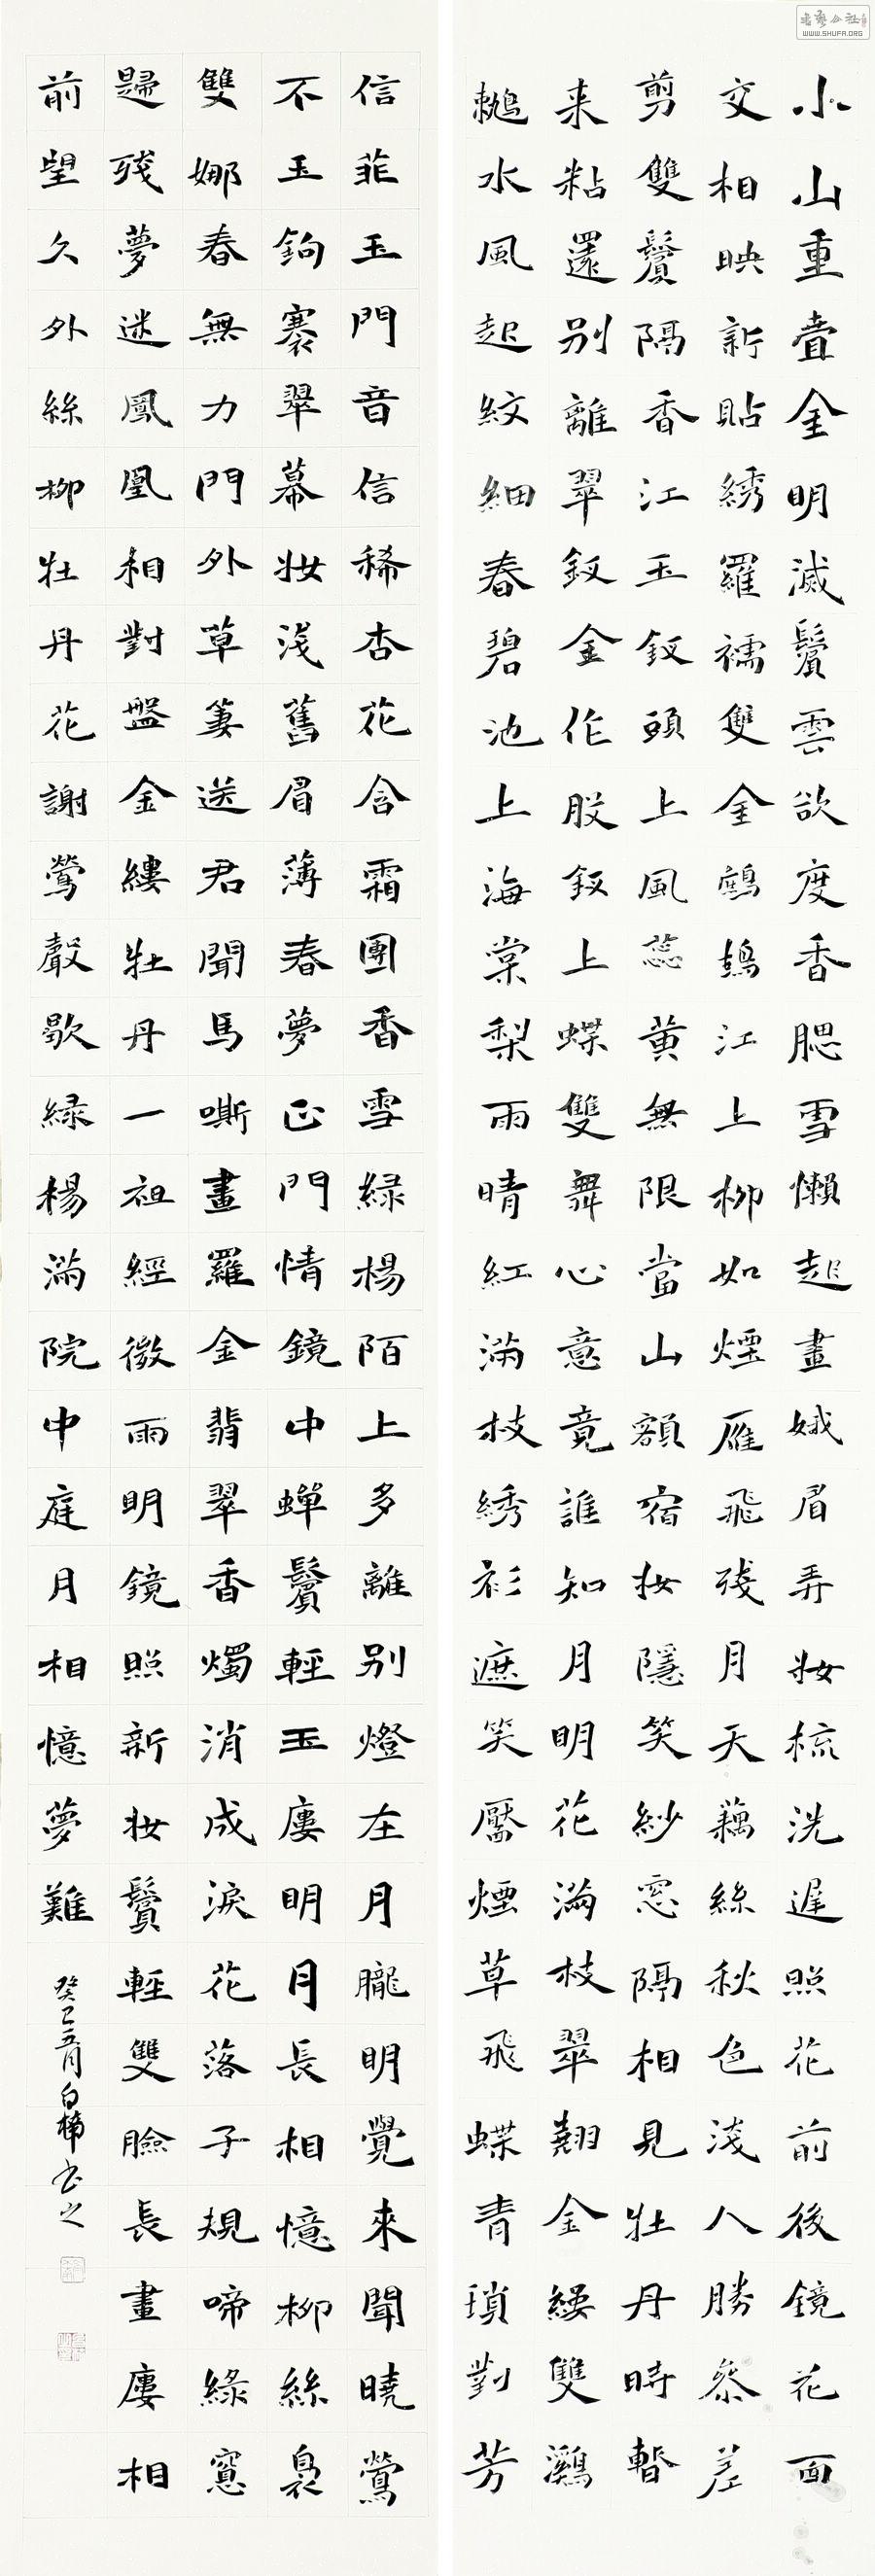 書藝公社
WWW.SHUFA.ORG
小山重疊金明滅鬢雲欲度香腮雪懶起畫娥眉弄妝梳洗遲照花前後鏡花面
交相映新貼綉羅襦雙金鷓鴣江上柳如煙雁飛殘月天藕絲秋色淺人勝參差
剪雙鬢隔香江玉釵頭上風蕊黄無限當山額宿妝隱笑紗窓隔相見牡丹時暫
来粘還别離翠釵金作股釵上蝶雙舞心意竟誰知月明花滿枝翠翹金縷雙鸂
鶒水風起紋細春碧池上海棠梨雨晴紅滿枝綉衫遮笑靨煙草飛蝶青瑣對芳
信菲玉門音信稀杏花含霜團香雪緑楊陌上多離别燈在月朧明覺來聞曉鶯
不玉鉤褰翠幕妝淺舊眉薄春夢正門情鏡中蟬鬢輕玉廔明月長相憶柳絲裊
雙娜春無力門外草萋送君聞馬嘶畫羅金翡翠香燭消成淚花落子規啼綠窓
歸殘夢迷鳳凰相對盤金縷牡丹一祖經微雨明鏡照新妝鬢輕雙臉長畫廔相
前望久外絲柳牡丹花謝鶯聲歇緑楊滿院中庭月相憶夢難
癸巳五月白樺書之